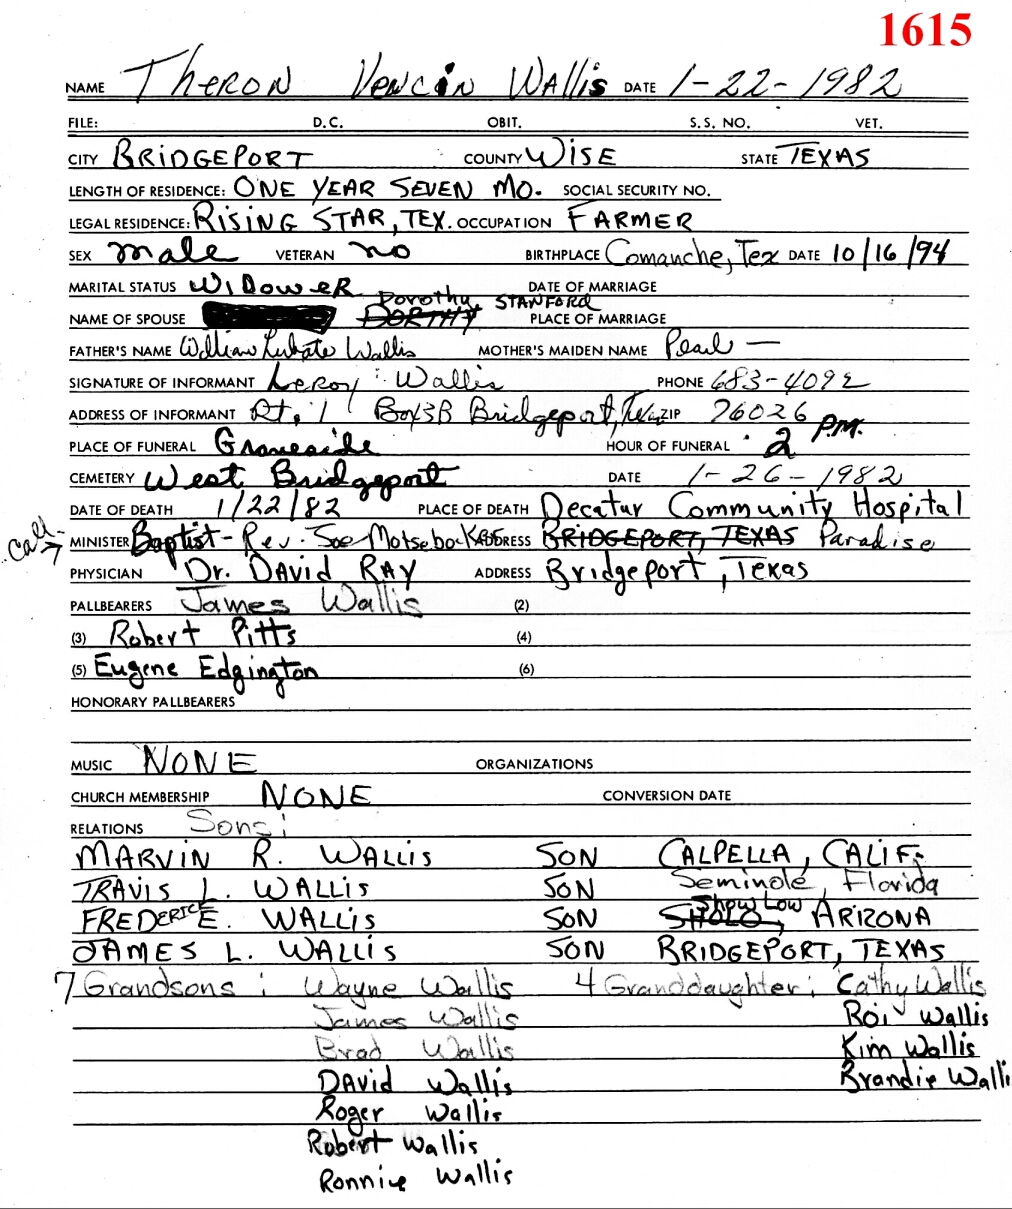 1615
NAME Theron Vencin Wallis DATE 1-22-1982
FILE: D.C. OBIT. S.S. NO. VET.
CITY BRIDGEPORT COUNTY WISE STATE TEXAS
LENGTH OF RESIDENCE: ONE YEAR SEVEN MO. SOCIAL SECURITY NO.
LEGAL RESIDENCE: RISING STAR, TEX. OCCUPATION FARMER
SEX male VETERAN no BIRTHPLACE Comanche, Tex DATE 10/16/94
MARITAL STATUS WIDOWER DATE OF MARRIAGE
Dorothy STANFORD
NAME OF SPOUSE DORTHY PLACE OF MARRIAGE
FATHER'S NAME William Wallis MOTHER'S MAIDEN NAME Pearl —
SIGNATURE OF INFORMANT Leroy Wallis PHONE 683-4092
ADDRESS OF INFORMANT Rt. 1 Box 3B Bridgeport, ZIP 76026
PLACE OF FUNERAL Graveside HOUR OF FUNERAL 2 P.M.
CEMETERY West Bridgeport DATE 1-26-1982
DATE OF DEATH 1/22/82 PLACE OF DEATH Decatur Community Hospital
Call → MINISTER Baptist - Rev. Joe ADDRESS BRIDGEPORT, TEXAS Paradise
PHYSICIAN Dr. DAVID RAY ADDRESS Bridgeport, Texas
PALLBEARERS James Wallis (2)
(3) Robert Pitts (4)
(5) Eugene Edgington (6)
HONORARY PALLBEARERS
MUSIC NONE ORGANIZATIONS
CHURCH MEMBERSHIP NONE CONVERSION DATE
RELATIONS Sons:
MARVIN R. WALLIS SON CALPELLA, CALIF.
TRAVIS L. WALLIS SON Seminole, Florida
Show Low
FREDERIC E. WALLIS SON SHOLO, ARIZONA
JAMES L. WALLIS SON BRIDGEPORT, TEXAS
7 Grandsons: Wayne Wallis 4 Granddaughter: Cathy Wallis
James Wallis Roi Wallis
Brad Wallis Kim Wallis
DAVID Wallis Brandie Walli
Roger Wallis
Robert Wallis
Ronnie Wallis